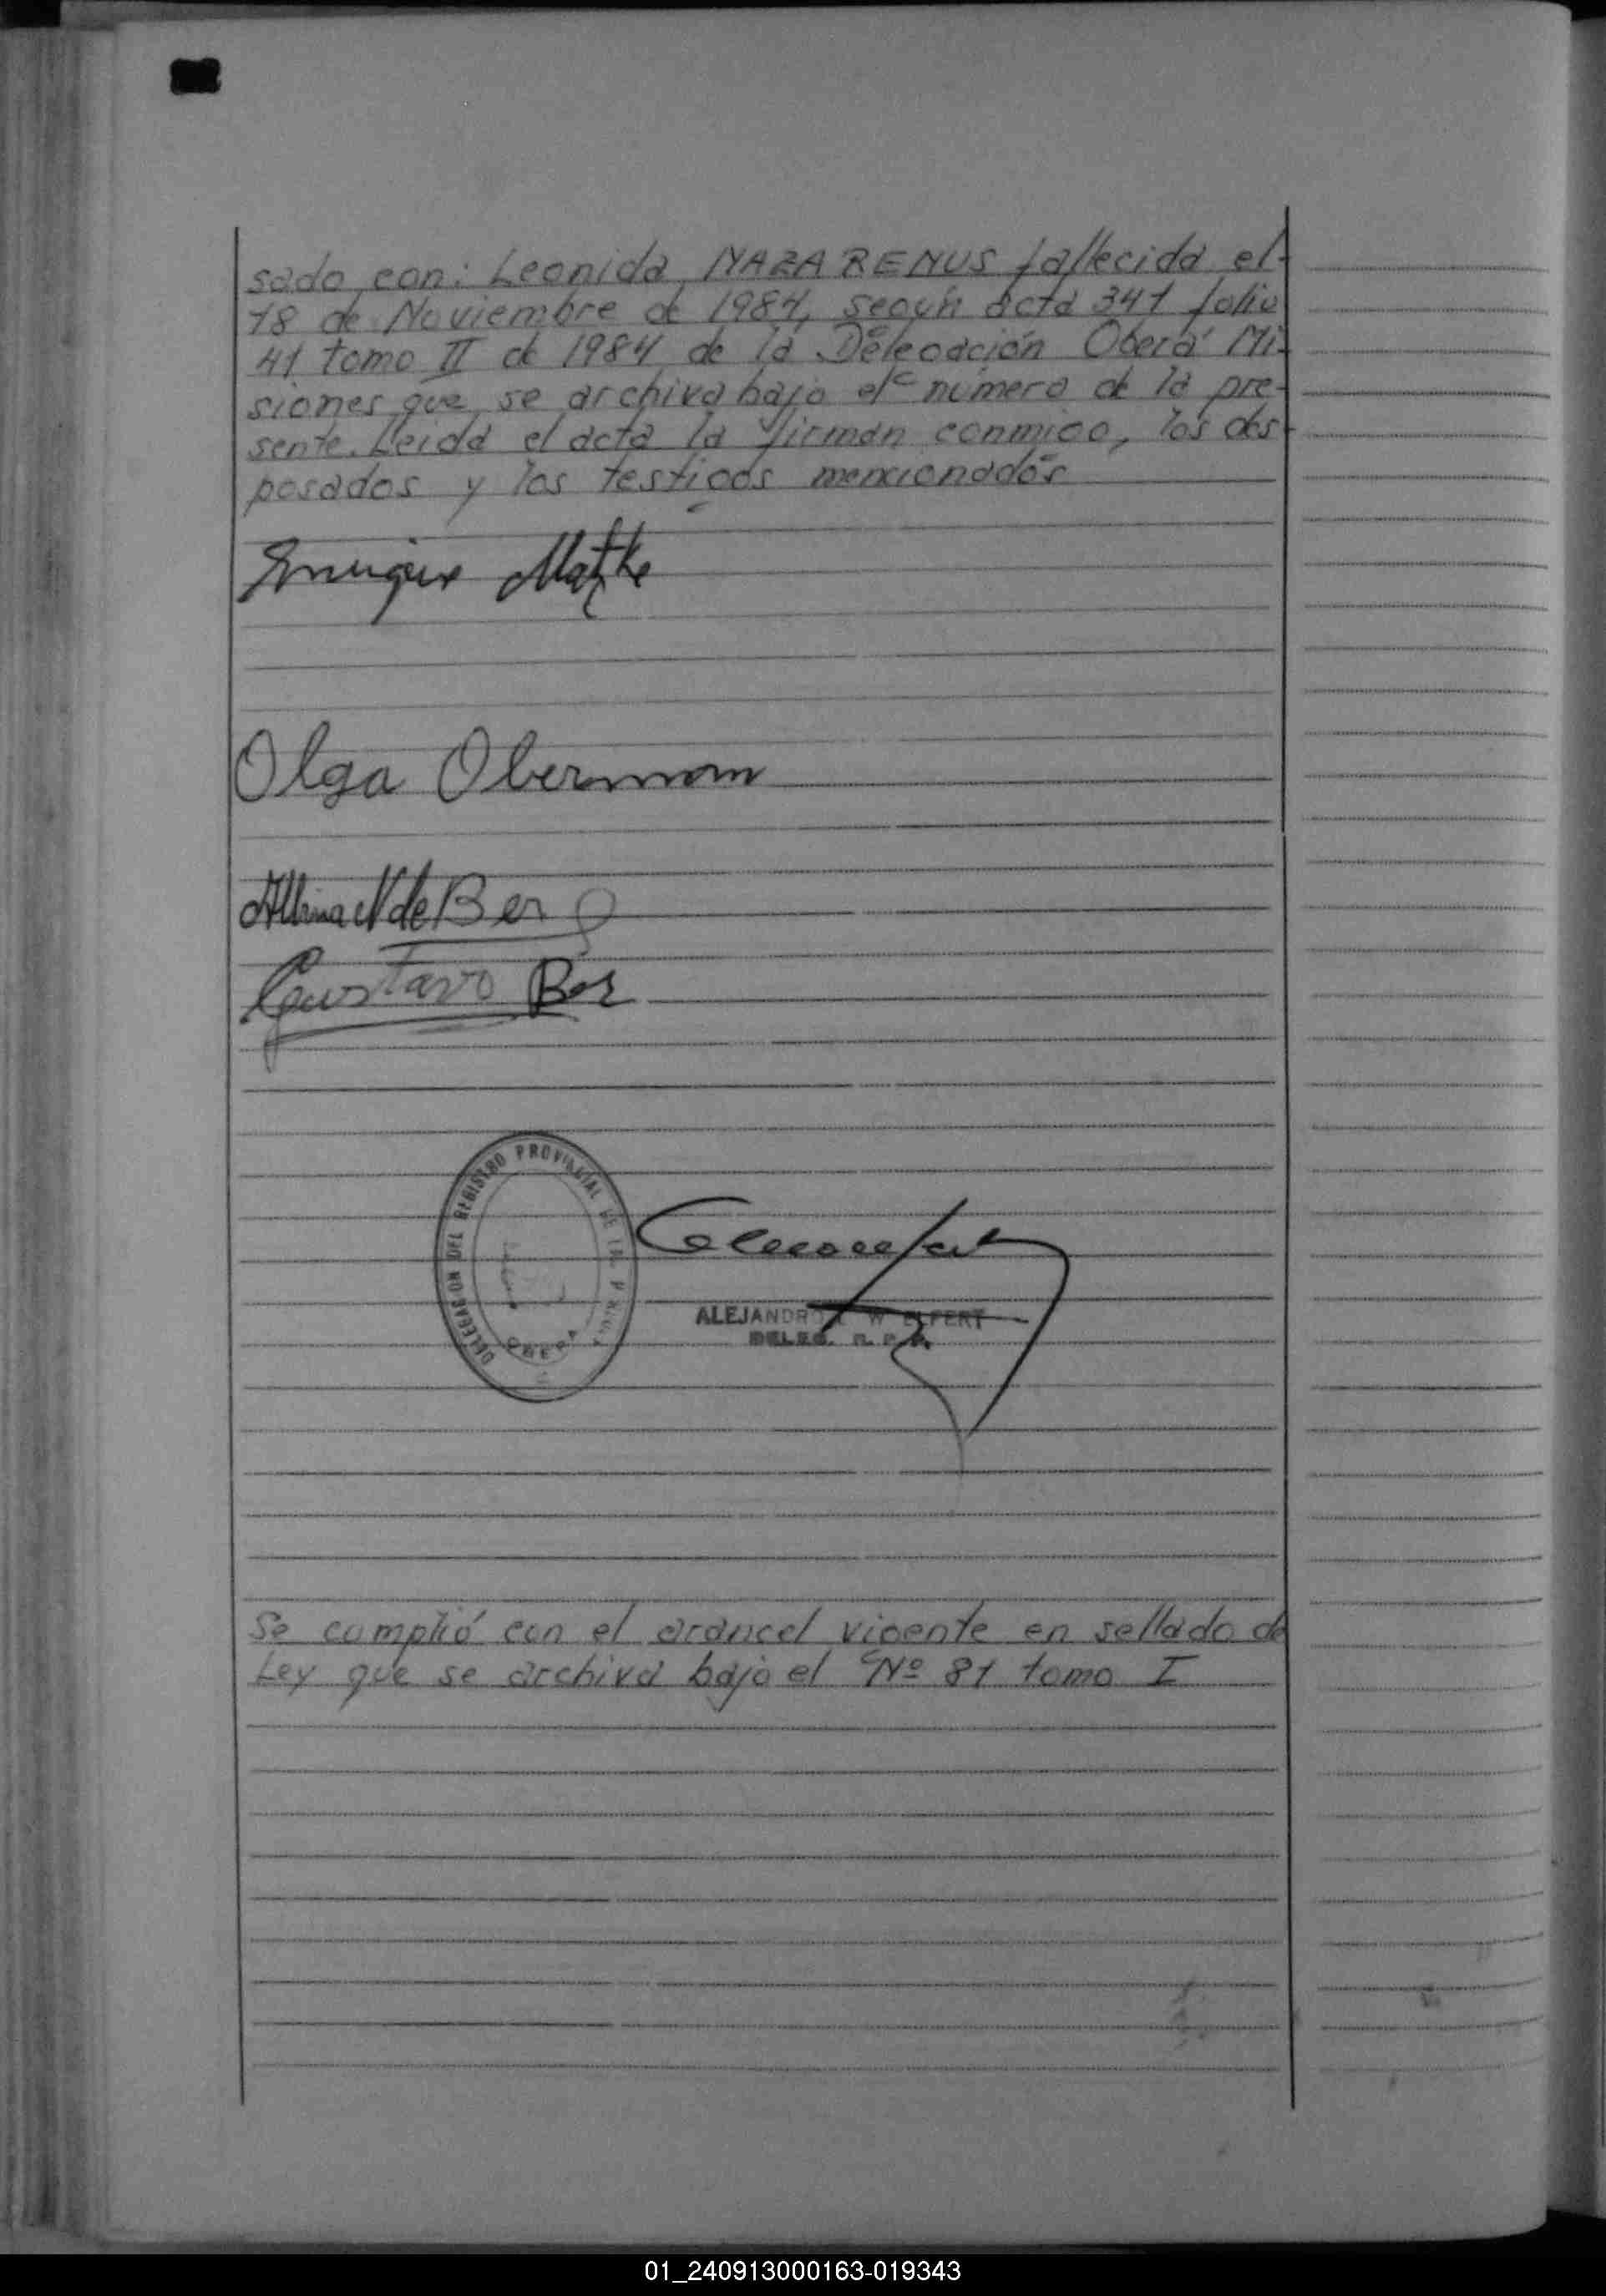 sado con: Leonida NAZARENUS fallecida el
18 de Noviembre de 1984, según acta 341 folio
41 tomo II de 1984 de la Delegación Oberá Mi-
siones que se archiva bajo el número de la pre-
sente. Leida el acta la firman conmigo, los des-
posados y los testigos mencionados
Enrique Matzke
Olga Oberman
Albina N de Berg
Gustavo Ber
DELEGACION DEL REGISTRO PROVINCIAL DE LAS
OBERA
ALEJANDRO W ELFERT
DELEG. R. P. P.
Se cumplió con el arancel vigente en sellado de
Ley que se archiva bajo el Nº 81 tomo I
01_240913000163-019343